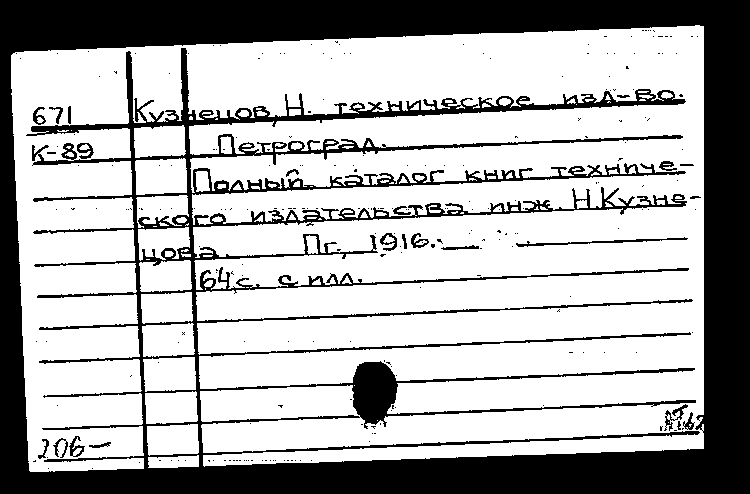 671 Кузнецов, Н. техническое изд-во.
К-89 Петроград.
Полный каталог книг техниче-
ского издательства инж. Н.Кузне-
цова. Пг., 1916.
64 с. с илл.
206-